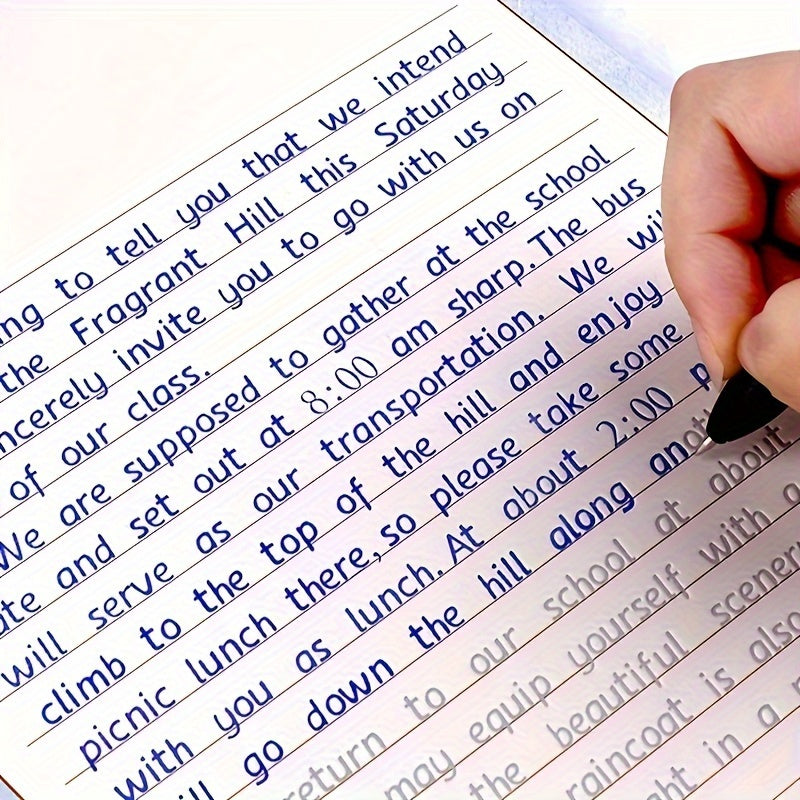 ng to tell you that we intend
the Fragrant Hill this Saturday
ncerely invite you to go with us on
of our class.
We are supposed to gather at the school
te and set out at 8:00 am sharp. The bus
will serve as our transportation. We wil
climb to the top of the hill and enjoy
picnic lunch there, so please take some
with you as lunch. At about 2:00 p
ll go down the hill along anoth
return to our school at about
may equip yourself with a
the beautiful scener
raincoat is also
ht in a